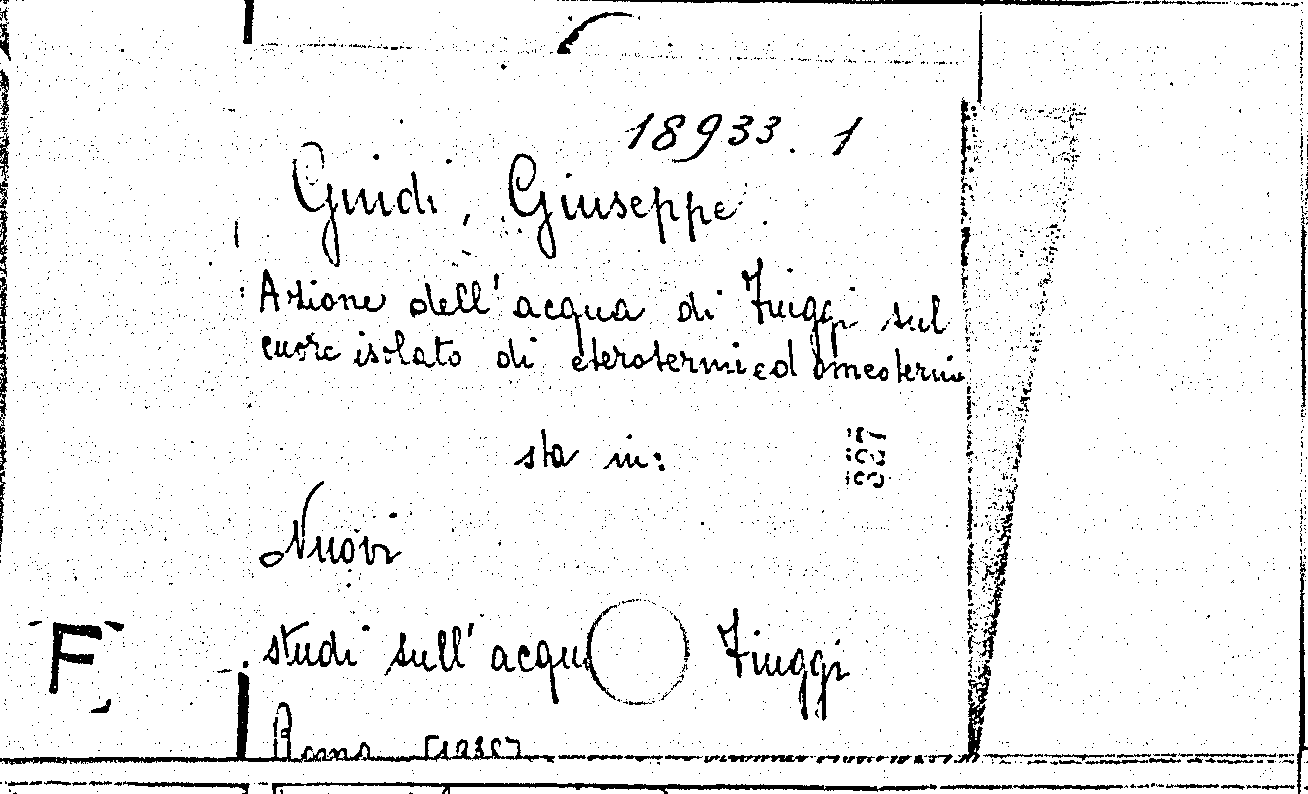 18933. 1
Guidi, Giuseppe.
Azione dell'acqua di Fiuggi sul
cuore isolato di eterotermi ed omeotermi
sta in:
Nuovi
studi sull'acqua Fiuggi
F
Roma